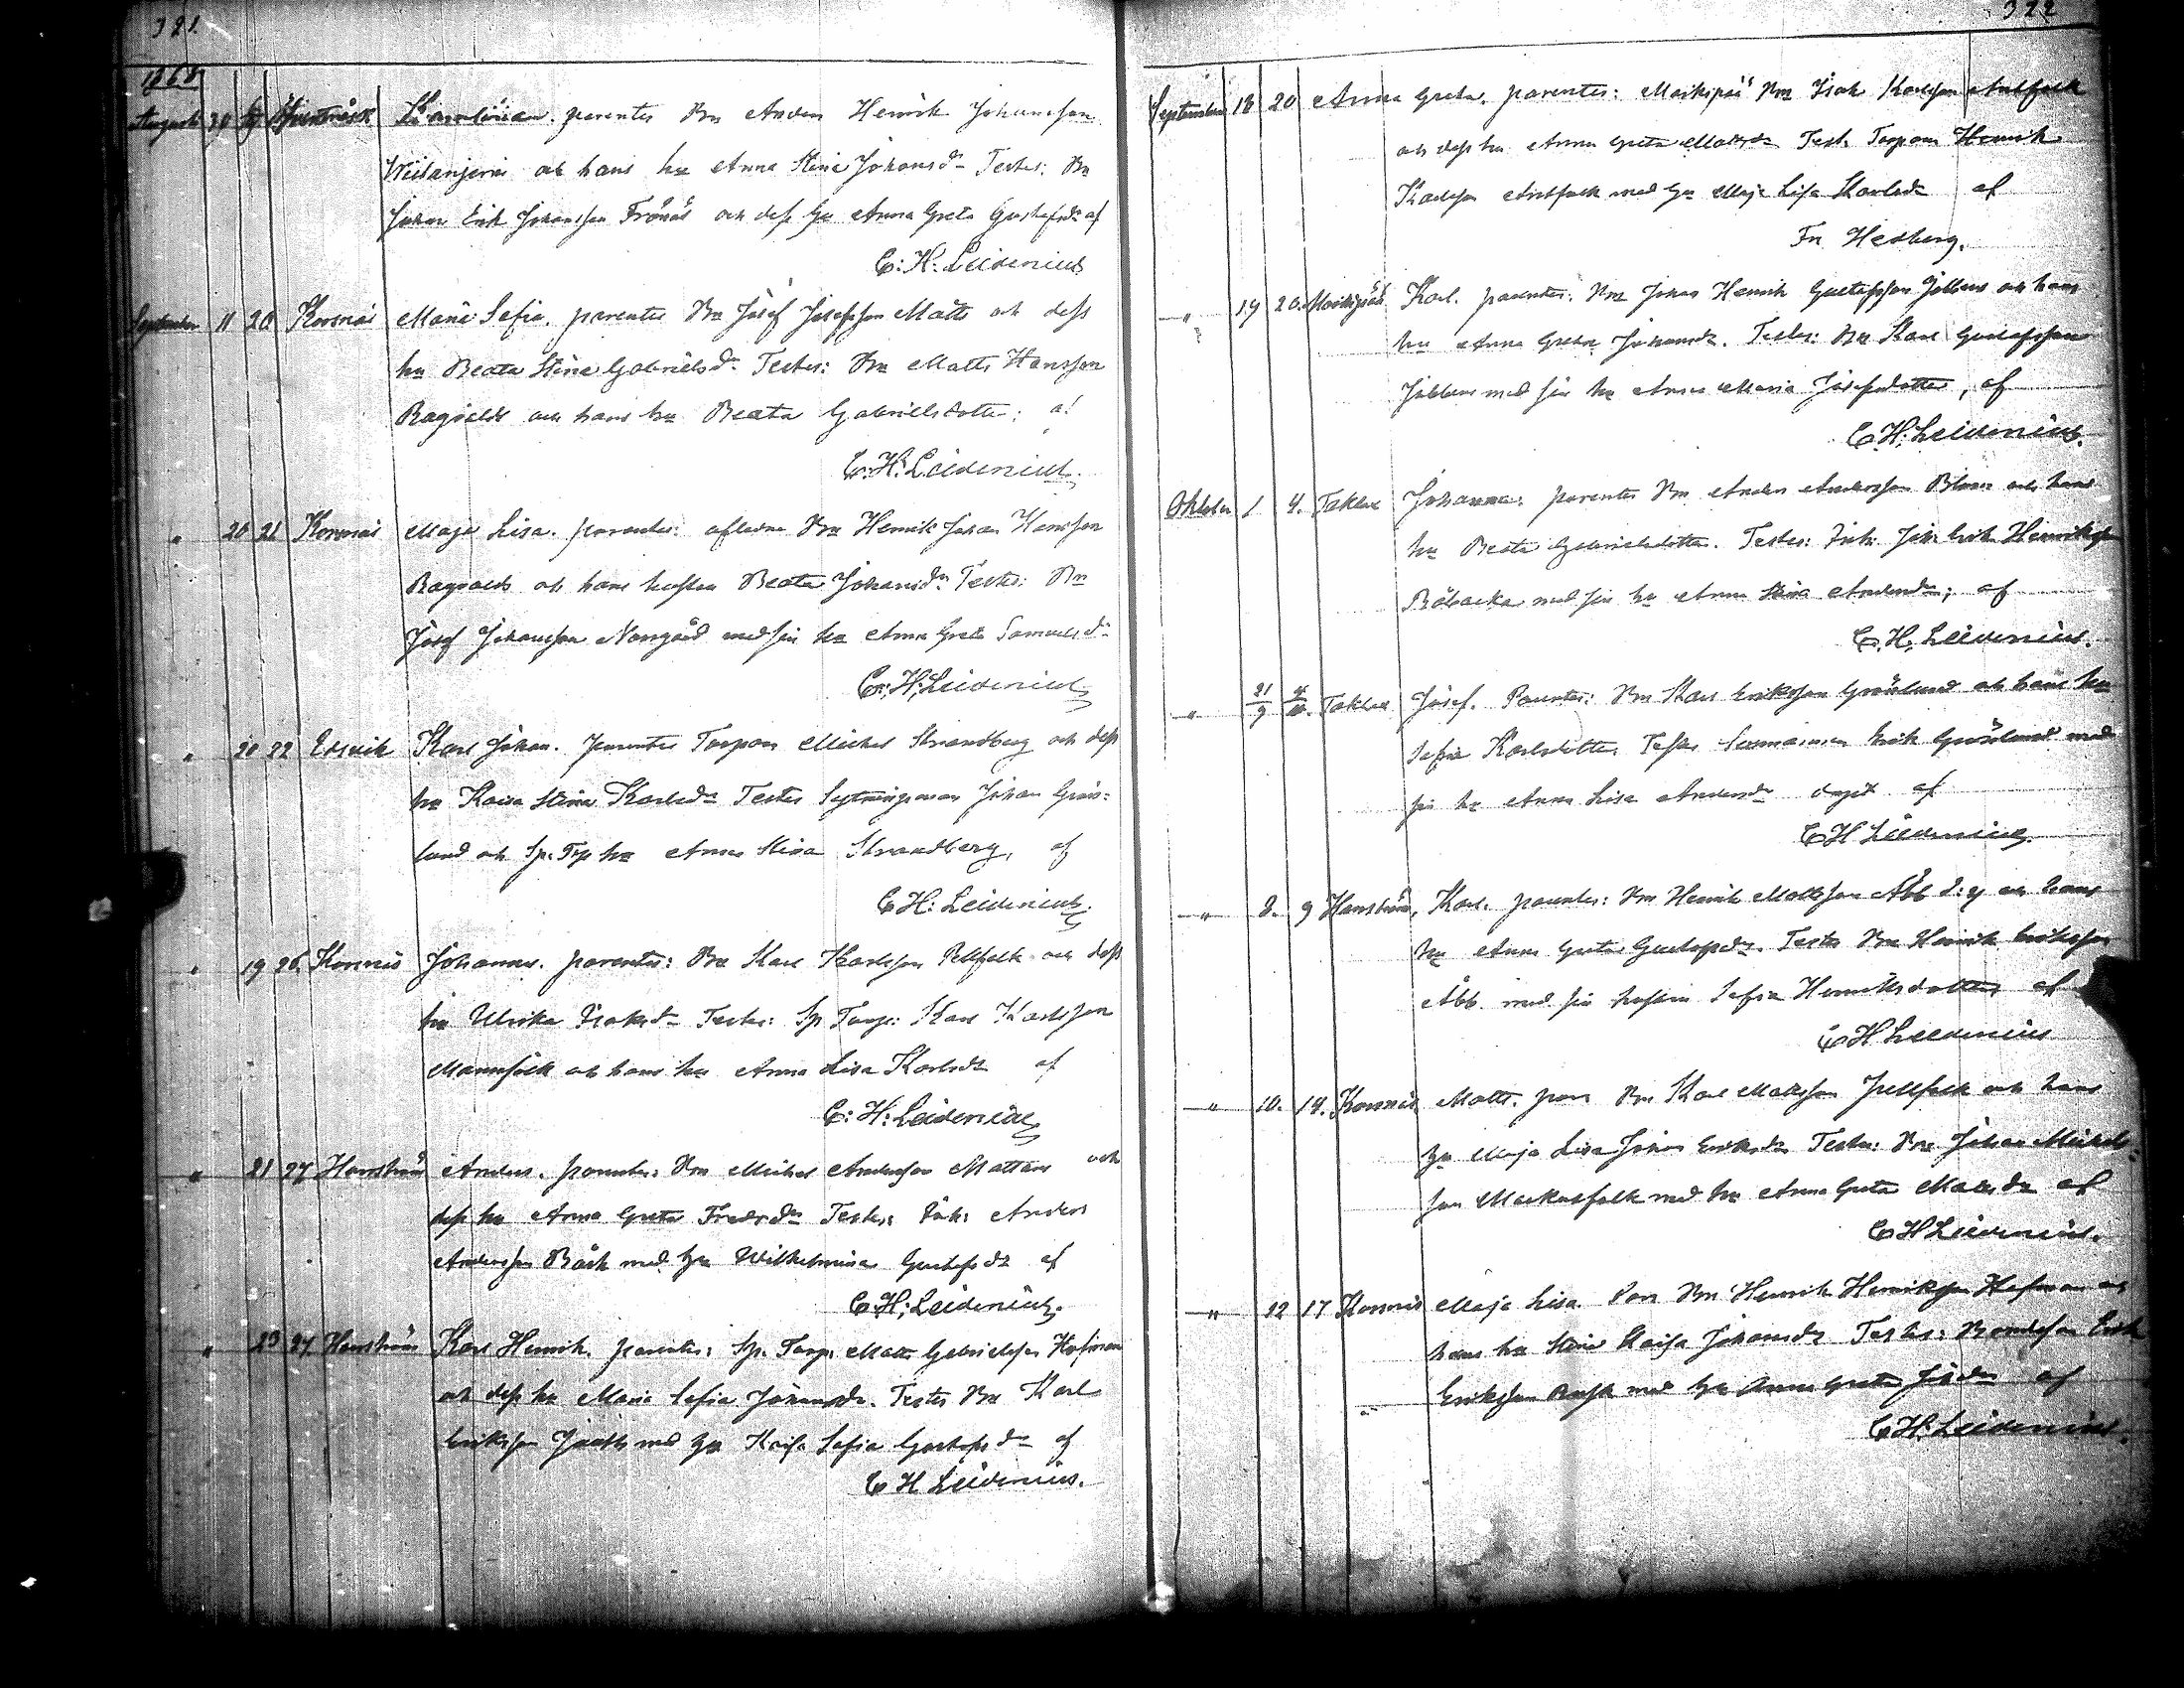 321.
1868
Augusti 30
parentes Bn Anders Henrik Johansson
och hans hu Anna Stina Johansdr Testes: Bn
Johan Erik Johansson Frönäs och dess hu Anna Greta Gustafsdr af
C: H: Leidenius
September 11 20 Korsnäs Maria Sofia. parentes Bn Josef Josefsson Matts och dess
hu Beata Stina Gabrielsdr Testes: Bn Matts Hansson
Ragvalds och hans hu Beata Gabrielsdotter; af
C: H: Leidenius.
" 20 21 Korsnäs Maja Lisa. parentes: aflidne Bn Henrik Johan Hansson
Ragvalds och hans hustru Beata Johansdr Testes: Bn
Josef Johansson Norrgård med sin hu Anna Greta Samuelsdr
C: H: Leidenius
" 20 22 Edsvik Karl Johan. parentes Torpar Michel Strandberg och dess
hu Kaisa Stina Karlsdr Testes Sytningsman Johan Grön-
lund och Sp. Trp hu Anna Stina Strandberg, af
C H: Leidenius.
" 19 26. Korsnäs Johannes. parentes: Bn Karl Karlsson Pellfolk och dess
hu Ulrika Isaksdr Testes: Sp Torp: Karl Karlsson
Mannfolk och hans hu Anna Lisa Karlsdr af
C: H: Leidenius
" 21 27 Harrström Anders. parentes: Bn Michel Andersson Mattans och
dess hu Anna Greta Fredrdr Testes: Anders
Andersson Bäck med hu Wilhelmina Gustafsdr af
C. H: Leidenius.
" 23 27 Harrström Karl Henrik. parentes: Sp. Torp. Matts Gabrielsson Hofman
och dess hu Maria Sofia Johansdr. Testes Bn Karl
Eriksson med hu Kaisa Sofia Gustafsdr af
C H Leidenius.
322
September 18 20 Anna Greta. parentes: Moikipää Bn Isak Karlsson Antfolk
och dess hu Anna Greta Mattsdr Test. Torparn Henrik
Karlsson Antfolk med hu Maja Lisa Karlsdr af
Fr. Hedberg.
" 19 20. Moikipää Karl. parentes: Bn Johan Henrik Gustafsson Jobbens och hans
hu Anna Greta Johansdr. Testes: Bn Karl Gustafsson
Jobbens med sin hu Anna Maria Josefsdotter, af
C. H: Leidenius.
Oktober 1 4. Taklax Johanna: parentes Bn Anders Andersson Blom och hans
hu Beata Gabrielsdotter. Testes: Joh. Erik Henriksson
Råbacka med sin hu Anna Stina Andersdr; af
C. H. Leidenius.
" 21/9 4/10. Taklax Josef. Parentes: Bn Karl Eriksson Grönlund och hans hu
Sofia Karlsdotter Testes Sexmannen Erik Grönlund med
sin hu Anna Lisa Andersdr döpt af
C H Leidenius.
" 8. 9 Harrström, Karl. parentes: Bn Henrik Mattsson Abb och hans
hu Anna Greta Gustafsdr. Testes Bn Henrik Eriksson
Abb med sin hustru Sofia Henriksdotter af
C H Leidenius
" 10. 14. Korsnäs Matts. paren Bn Karl Mattsson Jullfolk och hans
hu Maja Lisa Johan Eriksdr Testes: Bn Johan Michels-
son Markusfolk med hu Anna Greta Matsdr af
C H Leidenius.
" 12 17 Korsnäs Maja Lisa Paren Bn Henrik Henriksson Hofman och
hans hu Stina Kaisa Johansdr Testes: Bondeson Erik
Eriksson med hu Anna Greta af
C. H: Leidenius.